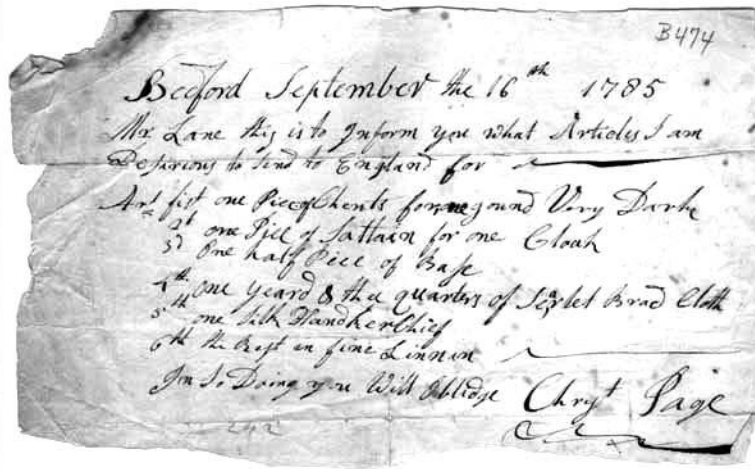 B474
Bedford September the 16th 1785
Mr Lane this is to Inform you what Articles I am
Desirious to Send to England for
Art fist one Piece of Chents for one gound Very Darke
2d one Piec of Sattain for one Cloak
3d One half Piec of Base
4th one yeard & thee quarters of Serlet Brad Cloth
5th one Silk Handkerchief
6th the Rest in fine Linnin
In So Doing you Will Oblidge Chryt Page
292